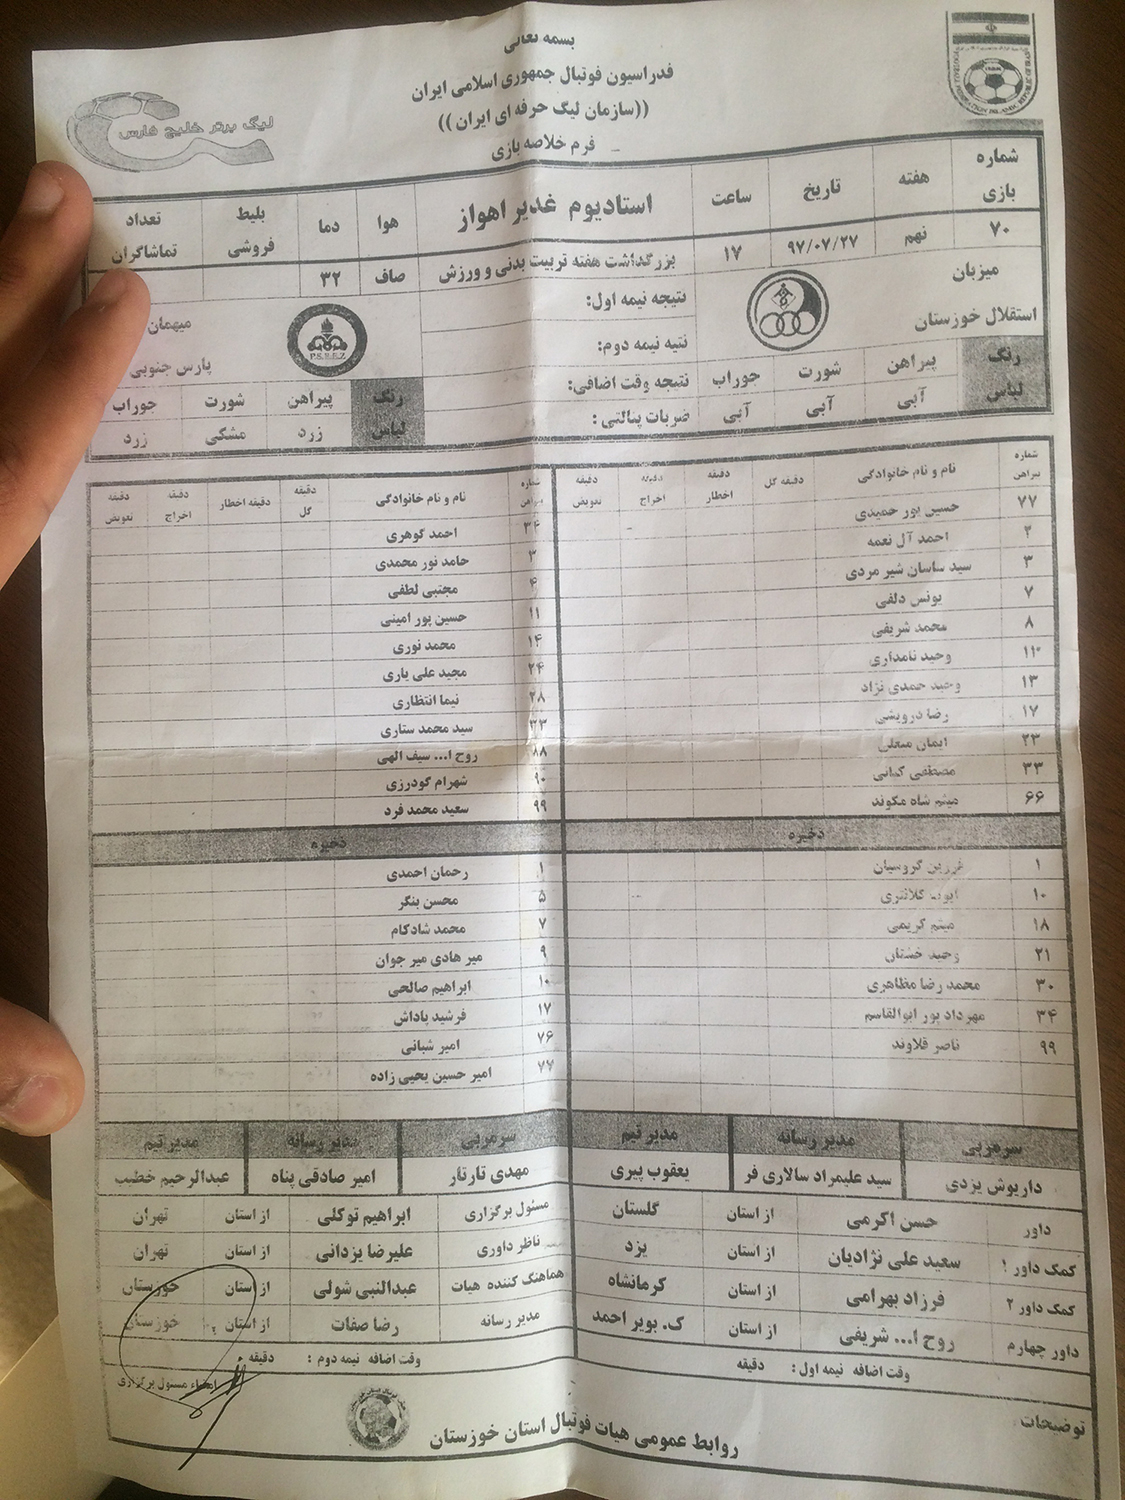 بسمه تعالی
فدراسیون فوتبال جمهوری اسلامی ایران
((سازمان لیگ حرفه ای ایران ))
فرم خلاصه بازی
لیگ برتر خلیج فارس
شماره بازی هفته تاریخ ساعت استادیوم غدیر اهواز هوا دما بلیط فروشی تعداد تماشاگران
۷۰ نهم ۹۷/۰۷/۲۷ ۱۷ بزرگداشت هفته تربیت بدنی و ورزش صاف ۳۲
میزبان نتیجه نیمه اول: میهمان
استقلال خوزستان نتیه نیمه دوم: P.S.E.E.Z پارس جنوبی
رنگ لباس پیراهن شورت جوراب نتیجه وقت اضافی: رنگ لباس پیراهن شورت جوراب
آبی آبی آبی ضربات پنالتی : زرد مشکی زرد
شماره پیراهن نام و نام خانوادگی دقیقه گل دقیقه اخطار دقیقه اخراج دقیقه تعویض شماره پیراهن نام و نام خانوادگی دقیقه گل دقیقه اخطار دقیقه اخراج دقیقه تعویض
۷۷ حسین پور حمیدی ۳۴ احمد گوهری
۲ احمد آل نعمه ۳ حامد نور محمدی
۳ سید ساسان شیر مردی ۴ مجتبی لطفی
۷ یونس دلفی ۱۱ حسین پور امینی
۸ محمد شریفی ۱۴ محمد نوری
۱۱ وحید نامداری ۲۴ مجید علی یاری
۱۳ وحید حمدی نژاد ۲۸ نیما انتظاری
۱۷ رضا درویشی ۳۳ سید محمد ستاری
۲۳ ایمان ۸۸ روح ا... سیف الهی
۳۳ مصطفی کمانی ۹۰ شهرام گودرزی
۶۶ میثم شاه مکوند ۹۹ سعید محمد فرد
ذخیره ذخیره
۱ فرزین گروسیان ۱ رحمان احمدی
۱۰ ایوب کلانتری ۵ محسن بنگر
۱۸ میثم کریمی ۷ محمد شادکام
۲۱ وحید ۹ میر هادی میر جوان
۳۰ محمد رضا مظاهری ۱۰ ابراهیم صالحی
۳۴ مهرداد پور ابوالقاسم ۱۷ فرشید پاداش
۹۹ ناصر قلاوند ۷۶ امیر شبانی
۷۷ امیر حسین یحیی زاده
سرمربی مدیر رسانه مدیر تیم سرمربی مدیر رسانه مدیر تیم
داریوش یزدی سید علیمراد سالاری فر یعقوب پیری مهدی تارتار امیر صادقی پناه عبدالرحیم خطیب
داور حسن اکرمی از استان گلستان مسئول برگزاری ابراهیم توکلی از استان تهران
کمک داور ۱ سعید علی نژادیان از استان یزد ناظر داوری علیرضا یزدانی از استان تهران
کمک داور ۲ فرزاد بهرامی از استان کرمانشاه هماهنگ کننده هیات عبدالنبی شولی از استان خوزستان
داور چهارم روح ا... شریفی از استان ک. بویر احمد مدیر رسانه رضا صفات از استان خوزستان
وقت اضافه نیمه اول : دقیقه وقت اضافه نیمه دوم : دقیقه
توضیحات امضاء مسئول برگزاری
روابط عمومی هیات فوتبال استان خوزستان